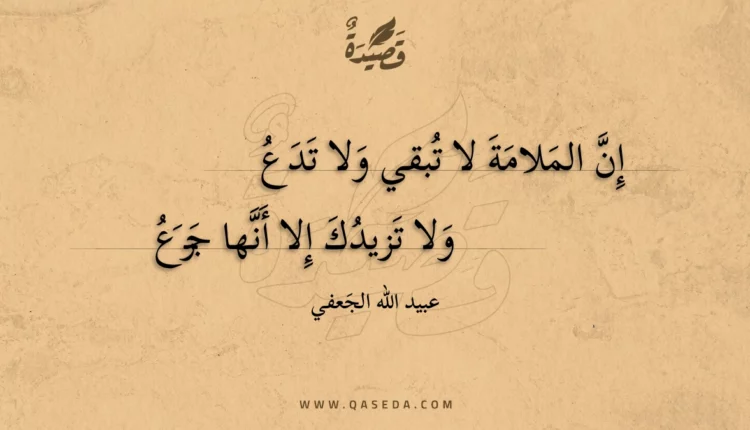 قَصِيدَةٌ
إِنَّ المَلامَةَ لا تُبقي وَلا تَدَعُ
وَلا تَزيدُكَ إِلا أَنَّها جَزَعُ
عبيد الله الجَعفي
WWW.QASEDA.COM